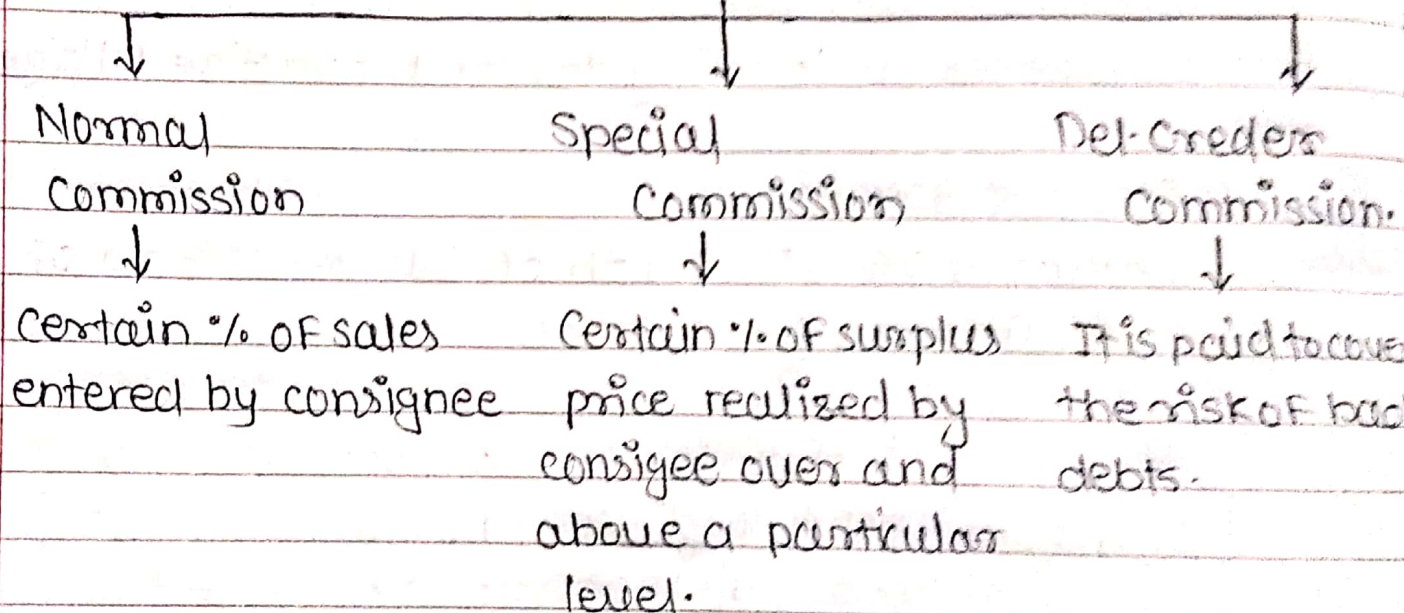 Normal
Commission
Certain % of sales
entered by consignee
Special
Commission
Certain % of surplus
price realized by
consigee over and
above a particular
level.
Del-Creder
Commission.
It is paid to cove
the risk of bad
debts.